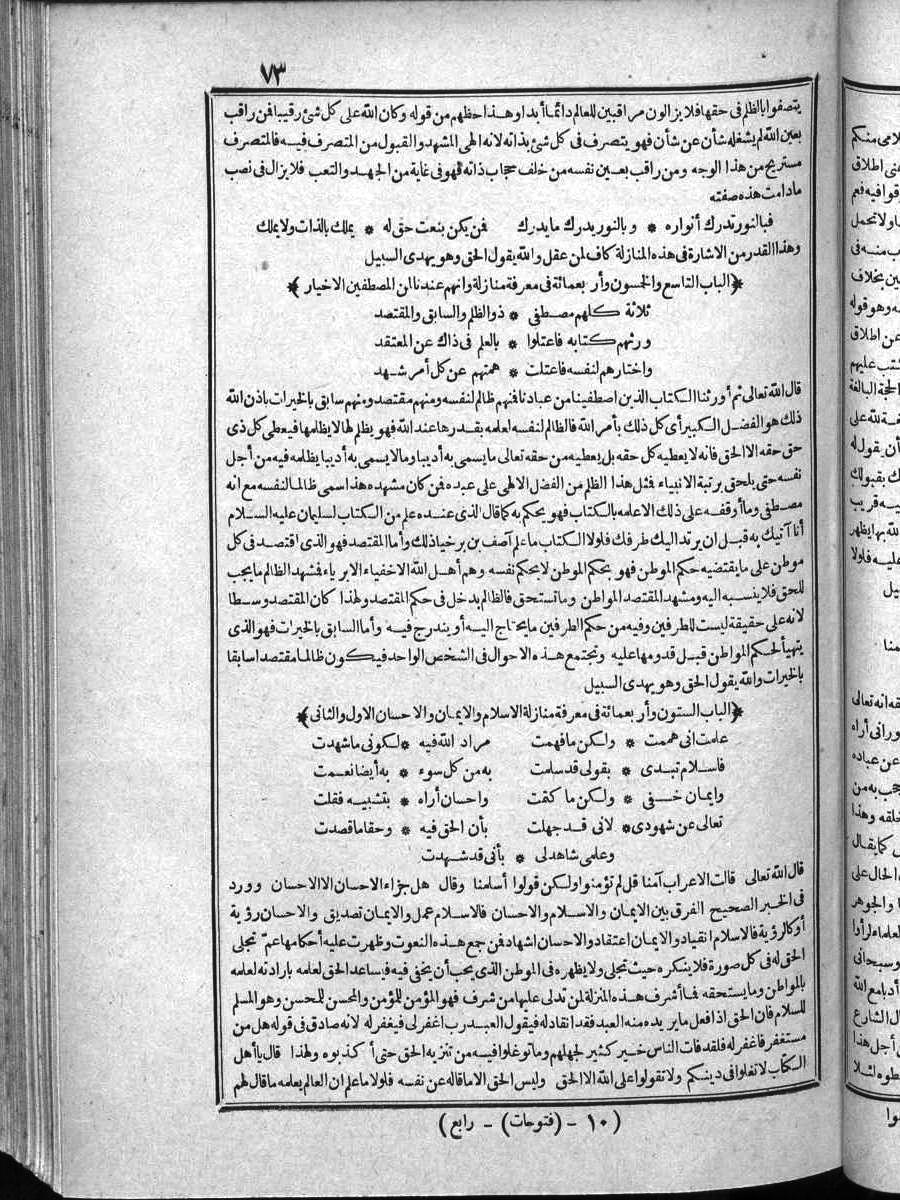 ٧٣
يتصفوا بالظلم فى حقها فلا يزالون مراقبين للعالم دائما أبدا وهذا حظهم من قوله وكان الله على كل شئ رقيبا فمن راقب
بعين الله لم يشغله شأن عن شأن فهو يتصرف فى كل شئ بذاته لانه الهى المشهد والقبول من المتصرف فيه فالمتصرف
مستريح من هذا الوجه ومن راقب بعين نفسه من خلف حجاب ذاته فهو فى غاية من الجهد والتعب فلا يزال فى نصب
مادامت هذه صفته
فبالنور تدرك أنواره * وبالنور يدرك ما يدرك فمن يكن بنعت حق له * يملك بالذات ولا يملك
وهذا القدر من الاشارة فى هذه المنازلة كاف لمن عقل والله يقول الحق وهو يهدى السبيل
﴿الباب التاسع والخمسون وأربعمائة فى معرفة منازلة وانهم عندنا لمن المصطفين الاخيار﴾
ثلاثة كلهم مصطفى * ذو الظلم والسابق والمقتصد
ورثهم كتابه فاعتلوا * بالعلم فى ذاك عن المعتقد
واختارهم لنفسه فاعتلت * همتهم عن كل أمر شهد
قال الله تعالى ثم أورثنا الكتاب الذين اصطفينا من عبادنا فمنهم ظالم لنفسه ومنهم مقتصد ومنهم سابق بالخيرات باذن الله
ذلك هو الفضل الكبير أى كل ذلك بأمر الله فالظالم لنفسه لعلمه بقدرها عند الله فهو يظلم لها لا يظلمها فيعطى كل ذى
حق حقه الا الحق فانه لا يعطيه كل حقه بل يعطيه من حقه تعالى ما يسمى به أديبا وما لا يسمى به أديبا يظلمه فيه من أجل
نفسه حتى يلحق برتبة الانبياء فمثل هذا الظلم من الفضل الالهى على عبده فمن كان مشهده هذا سمى ظالما لنفسه مع انه
مصطفى وما أوقفه على ذلك الا علمه بالكتاب فهو يحكم به كما قال الذى عنده علم من الكتاب لسليمان عليه السلام
أنا آتيك به قبل ان يرتد اليك طرفك فلولا الكتاب ما علم آصف بن برخيا ذلك وأما المقتصد فهو الذى اقتصد فى كل
موطن على ما يقتضيه حكم الموطن فهو بحكم الموطن لا بحكم نفسه وهم أهل الله الاخفياء الابرياء فشهد الظالم ما يجب
للحق فلا ينسبه اليه ومشهد المقتصد المواطن وما تستحق فالظالم يدخل فى حكم المقتصد ولهذا كان المقتصد وسطا
لانه على حقيقة ليست للطرفين وفيه من حكم الطرفين ما يحتاج اليه أو يندرج فيه وأما السابق بالخيرات فهو الذى
يتهيأ لحكم المواطن قبل قدومها عليه وتجتمع هذه الاحوال فى الشخص الواحد فيكون ظالما مقتصدا سابقا
بالخيرات والله يقول الحق وهو يهدى السبيل
﴿الباب الستون وأربعمائة فى معرفة منازلة الاسلام والايمان والاحسان الاول والثانى﴾
علمت انى هممت * ولكن ما فهمت مراد الله فيه * لكونى ما شهدت
فاسلام تبدى * بقولى قد سلمت به من كل سوء * به أيضا نعمت
وايمان خفى * ولكن ما كفت واحسان أراه * بتشبيه فقلت
تعالى عن شهودى * لانى قد جهلت بأن الحق فيه * وحقا ما قصدت
وعلمى شاهد لى * بأنى قد شهدت
قال الله تعالى قالت الاعراب آمنا قل لم تؤمنوا ولكن قولوا أسلمنا وقال هل جزاء الاحسان الا الاحسان وورد
فى الخبر الصحيح الفرق بين الايمان والاسلام والاحسان فالاسلام عمل والايمان تصديق والاحسان رؤية
أو كالرؤية فالاسلام انقياد والايمان اعتقاد والاحسان اشهاد فمن جمع هذه النعوت وظهرت عليه أحكامها عم تجلى
الحق له فى كل صورة فلا ينكره حيث تجلى ولا يظهره فى الموطن الذى يحب أن يخفى فيه فيساعد الحق لعلمه بارادته لعلمه
بالمواطن وما يستحقه فما أشرف هذه المنزلة لمن تدلى عليها من شرف فهو المؤمن للمؤمن والمحسن للمحسن وهو المسلم
للسلام فان الحق اذا فعل ما يريده منه العبد فقد انقاد له فيقول العبد رب اغفر لى فيغفر له لانه صادق فى قوله هل من
مستغفر فاغفر له فلقد فات الناس خير كثير لجهلهم وما توغلوا فيه من تنزيه الحق حتى أكذبوه ولهذا قال يا أهل
الكتاب لا تغلوا فى دينكم ولا تقولوا على الله الا الحق وليس الحق الا ما قاله عن نفسه فلولا ما علم ان العالم يعلمه ما قال لهم
(١٠ - (فتوحات) - رابع)